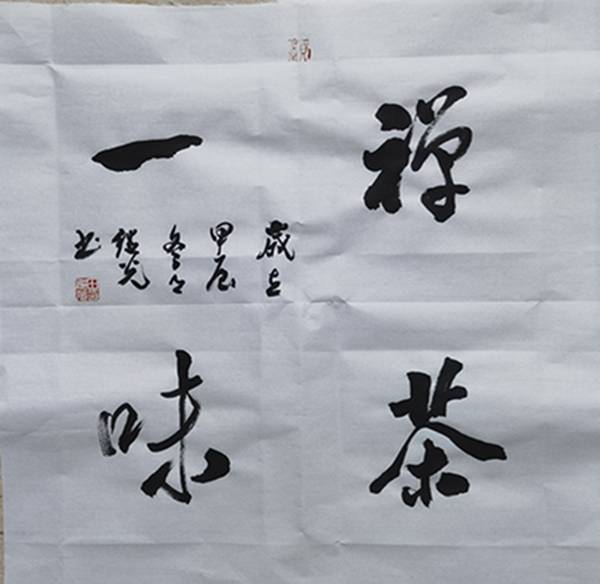 禅茶
一味
歲在
甲辰
冬月
继光
书